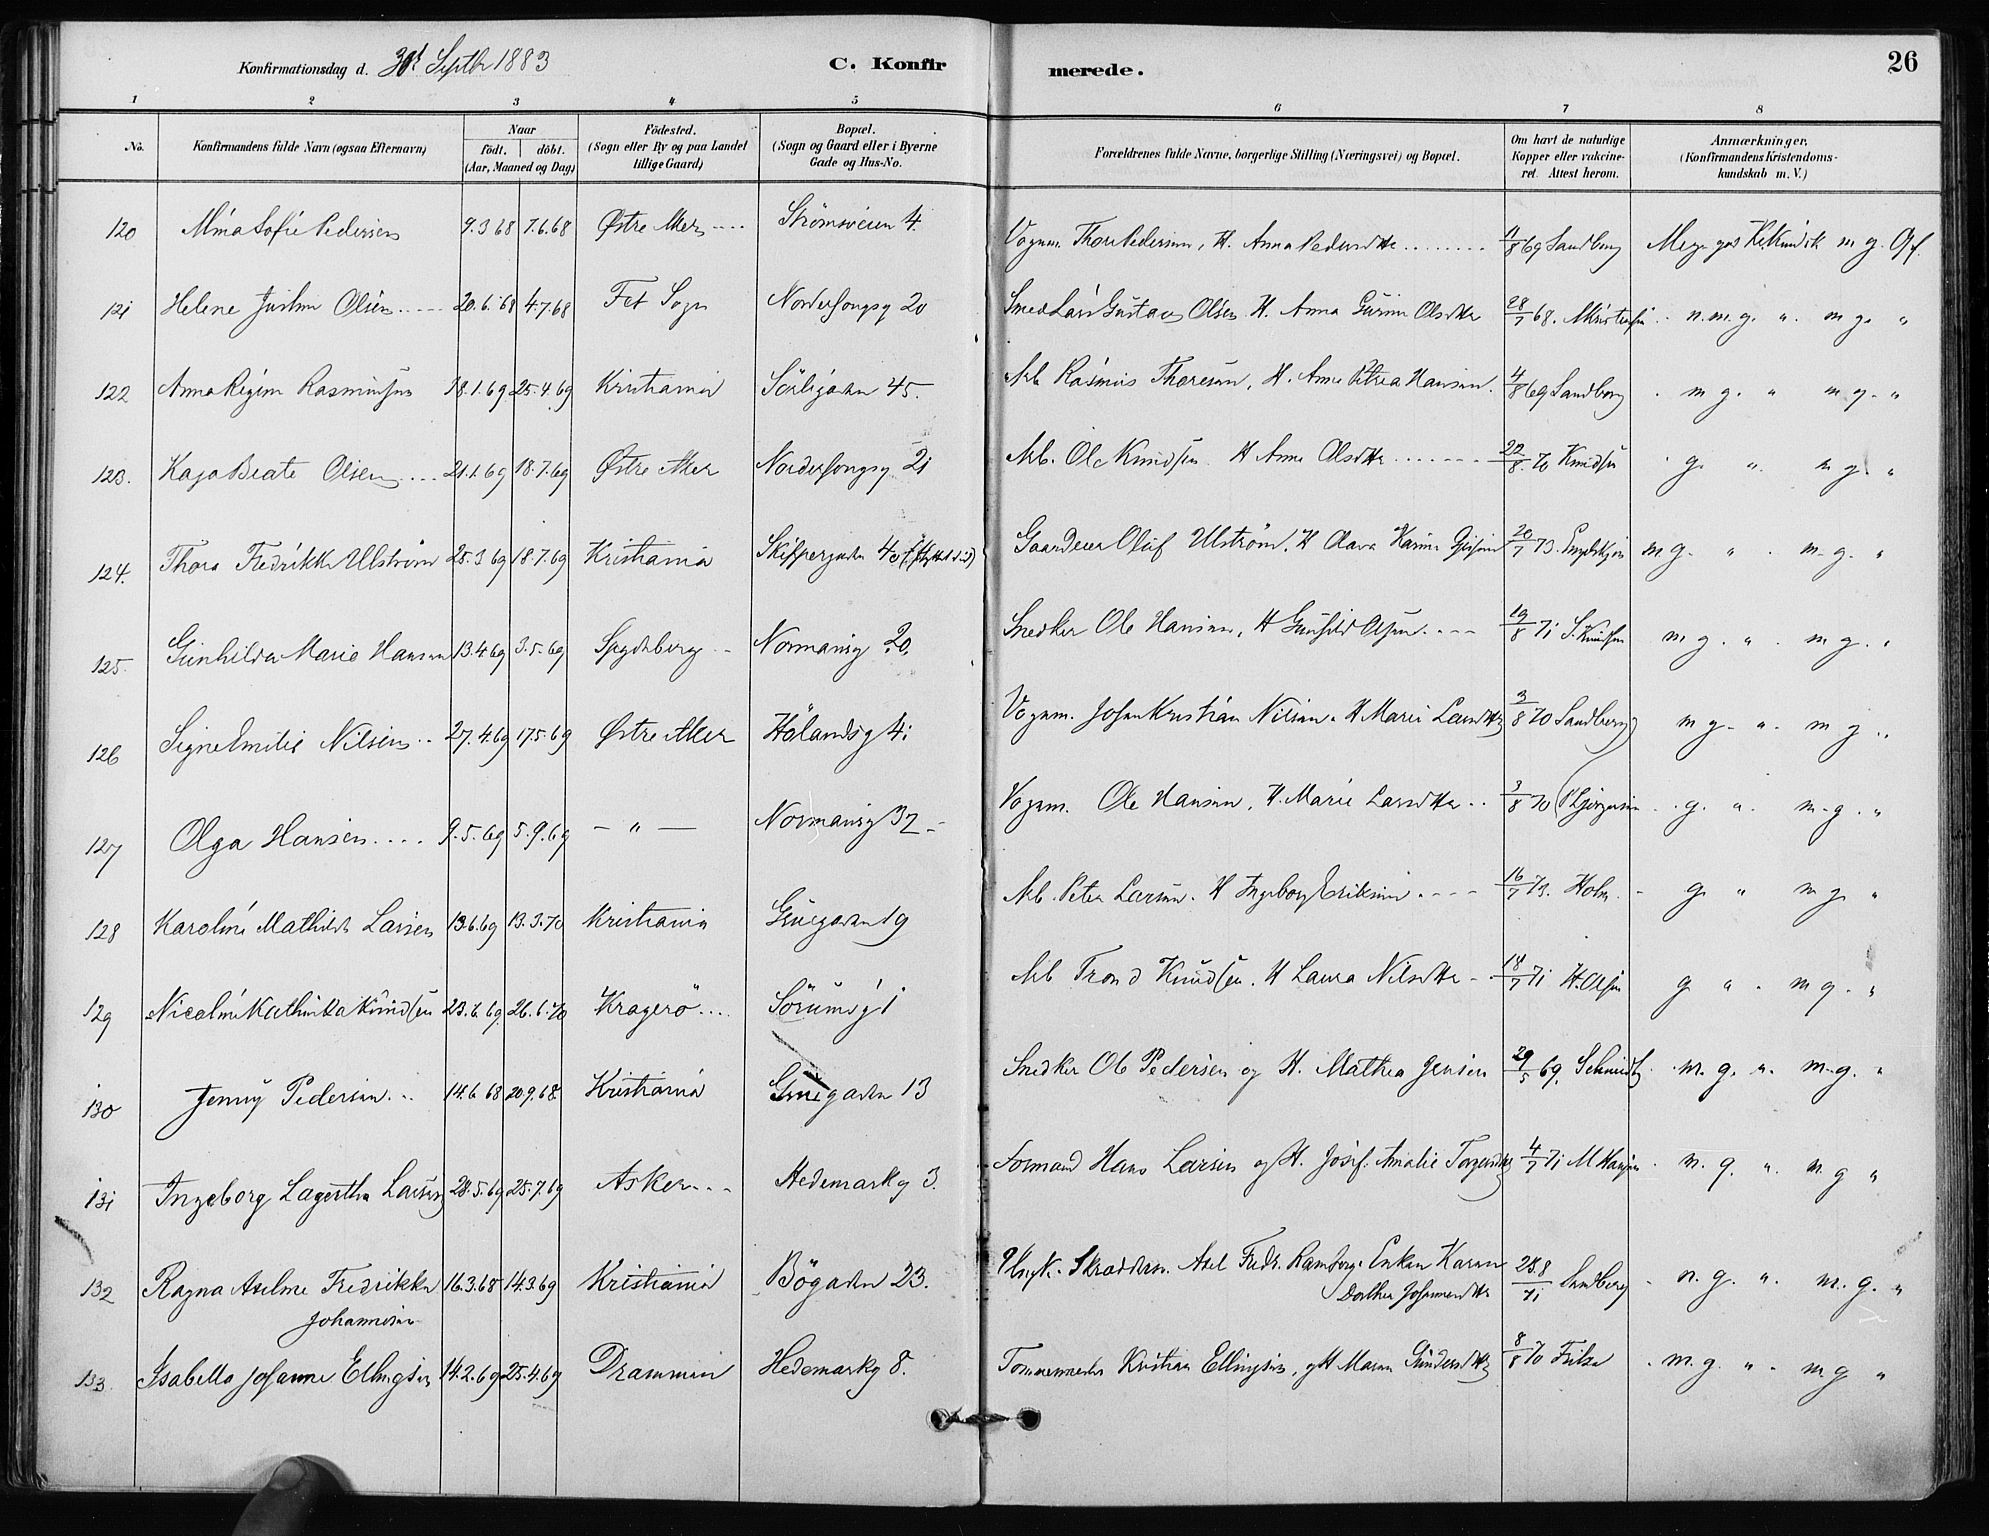 Konfirmationsdag d. 30t Septbr 1883 C. Konfir merede. 26
1 2 3 4 5 6 7 8
No. Konfirmandens fulde Navn (ogsaa Efternavn) Naar födt. döbt. (Aar, Maaned og Dag) Födested. (Sogn eller By og paa Landet tillige Gaard) Bopæl. (Sogn og Gaard eller i Byerne Gade og Hus-No. Forældrenes fulde Navne, borgerlige Stilling (Næringsvei) og Bopæl. Om havt de naturlige Kopper eller vakcineret. Attest herom. Anmærkninger. (Konfirmandens Kristendomskundskab m. V.)
120 Mina Sofie Pedersen 9.3 68 7.6.68 Østre Aker Strømsveien 4. Vognm. Thore Pedersen, H. Anna Pedersdtr 8 69 Sandberg Meget gode m g. Opf.
121 Helene Olsen 20.6.68 4.7.68 Fet Sogn 20 Smed Lars Gustav Olsen H. Anna Olsdtr 28/7 68. n. m. g. " m g. "
122 Anna Rasmussen 18.1.69 25.4.69 Kristiania Sörligaden 45. Arb. Rasmus Thoresen, H. Anne Petrea Hansen. 4/8 69 Sandberg m g. " m g. "
123. Kaja Beate Olsen 21.1.69 18.7.69 Østre Aker 21 Arb. Ole Knudsen H Anne Olsdtr 22/8 70 Knudsen g. " m g. "
124. Thora Fredrikke Ulström 25.3 69 18.7.69 Kristiania Skippergaden 40 Gaardeier Oluf Ulström, H Olava Karine 20/7 73. m g. " m. g. "
125. Gunhilda Marie Hansen 13.4 69 3.5.69 Spydeberg Normansg 20. Snedker Ole Hansen, H Gunhild Olsen 19/8 71 S. Knudsen m g. " m g. "
126 Signe Emilie Nilsen 27.4.69 17.5 69 Østre Aker Hölandsg 41 Vognm. Johan Kristian Nilsen. H Marie Larsdtr 3/8 70 Sandberg m g. " m g. "
127 Olga Hansen 9.5.69 5.9.69 — " — Normansg 32 Vognm. Ole Hansen, H. Marie Larsdtr 3/8 70 g. " m. g. "
128 Karoline Mathilde Larsen 13.6.69 13.3.70 Kristiania Gruegaden 19 Arb. Peter Larsen. H Ingeborg Eriksen 16/7 73. Holm g. " m g. "
129 Nicoline Kathinka Knudsen 23.6.69. 26.6.70 Kragerö Sörumsg 1 Arb Trond Knudsen. H Laura Nilsdtr 18/7 71 H. Olsen g " m g. "
130 Jenny Pedersen 14.6 68 20.9.68 Kristiania Gruegaden 13 Snedker Ole Pedersen og H. Mathea Jensen 29/5 69. m. g. " m. g. "
131 Ingeborg Lagertha Larsen 28.5.69 25.7.69 Asker Hedemarkg 3. Formand Hans Larsen og H. Josef. Amalie 4/7 71 M Hansen m. g. " m. g "
132 Ragna Axeline Fredrikke 16.3.68 14.3.69 Kristiania Bögaden 23. Skrædderm. Axel Fredr. Enkem Karen 28.8/71 Sandberg n. g. " m. g. "
Johannesen Dorthea Johannesdtr
133. Isabella Johanne Ellingsen 14.2.69 25.4.69 Drammen Hedemarkg 8. Tømmermester Kristian Ellingsen, og H Maren Gundersdtr 8/8 70 m. g. " m g "